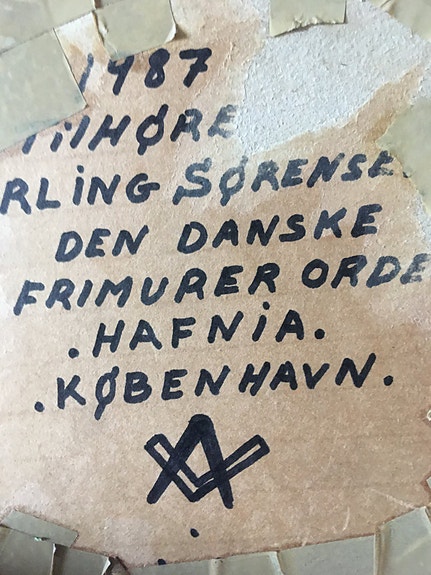 1987
TiLHØRE
RLiNG SØRENSE
DEN DANSKE
FRIMURER ORDE
.HAFNiA.
.KØBENHAVN.